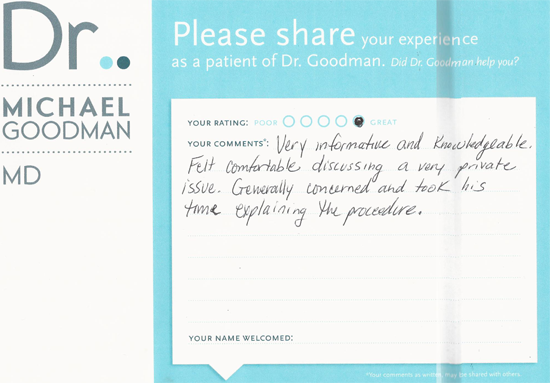 Dr.
MICHAEL
GOODMAN
MD
Please share your experience
as a patient of Dr. Goodman. Did Dr. Goodman help you?
YOUR RATING: POOR GREAT
YOUR COMMENTS*: Very informative and Knowledgeable.
Felt comfortable discussing a very private
issue. Generally concerned and took his
time explaining the proceedure.
YOUR NAME WELCOMED:
*Your comments as written, may be shared with others.